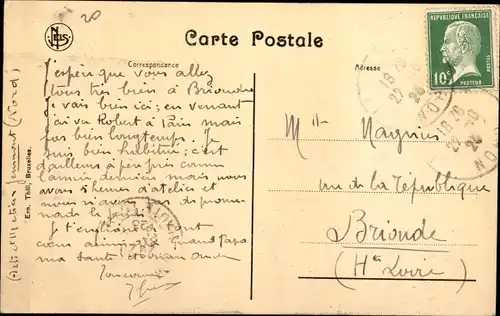 20
Nels
Carte Postale
RÉPUBLIQUE FRANÇAISE
10c
PASTEUR
POSTES
Correspondance
Adresse
J'espère que vous allez
tous très bien à Brionde
Je vais bien ici; en venant
j'ai vu Robert à Paris mais
pas bien longtemps. Je
suis bien habitué; c'est
d'ailleurs à peu près comme
l'année dernière mais nous
avons 8 heures d'atelier et
nous n'avons pas de prome-
nade le jeudi
Je t'embrasse
Grand Papa
ma tante
Mlle
rue de la République
Brionde
(Hte Loire)
Ern. Thill, Bruxelles.
(Nord)
18 25
27
NORD